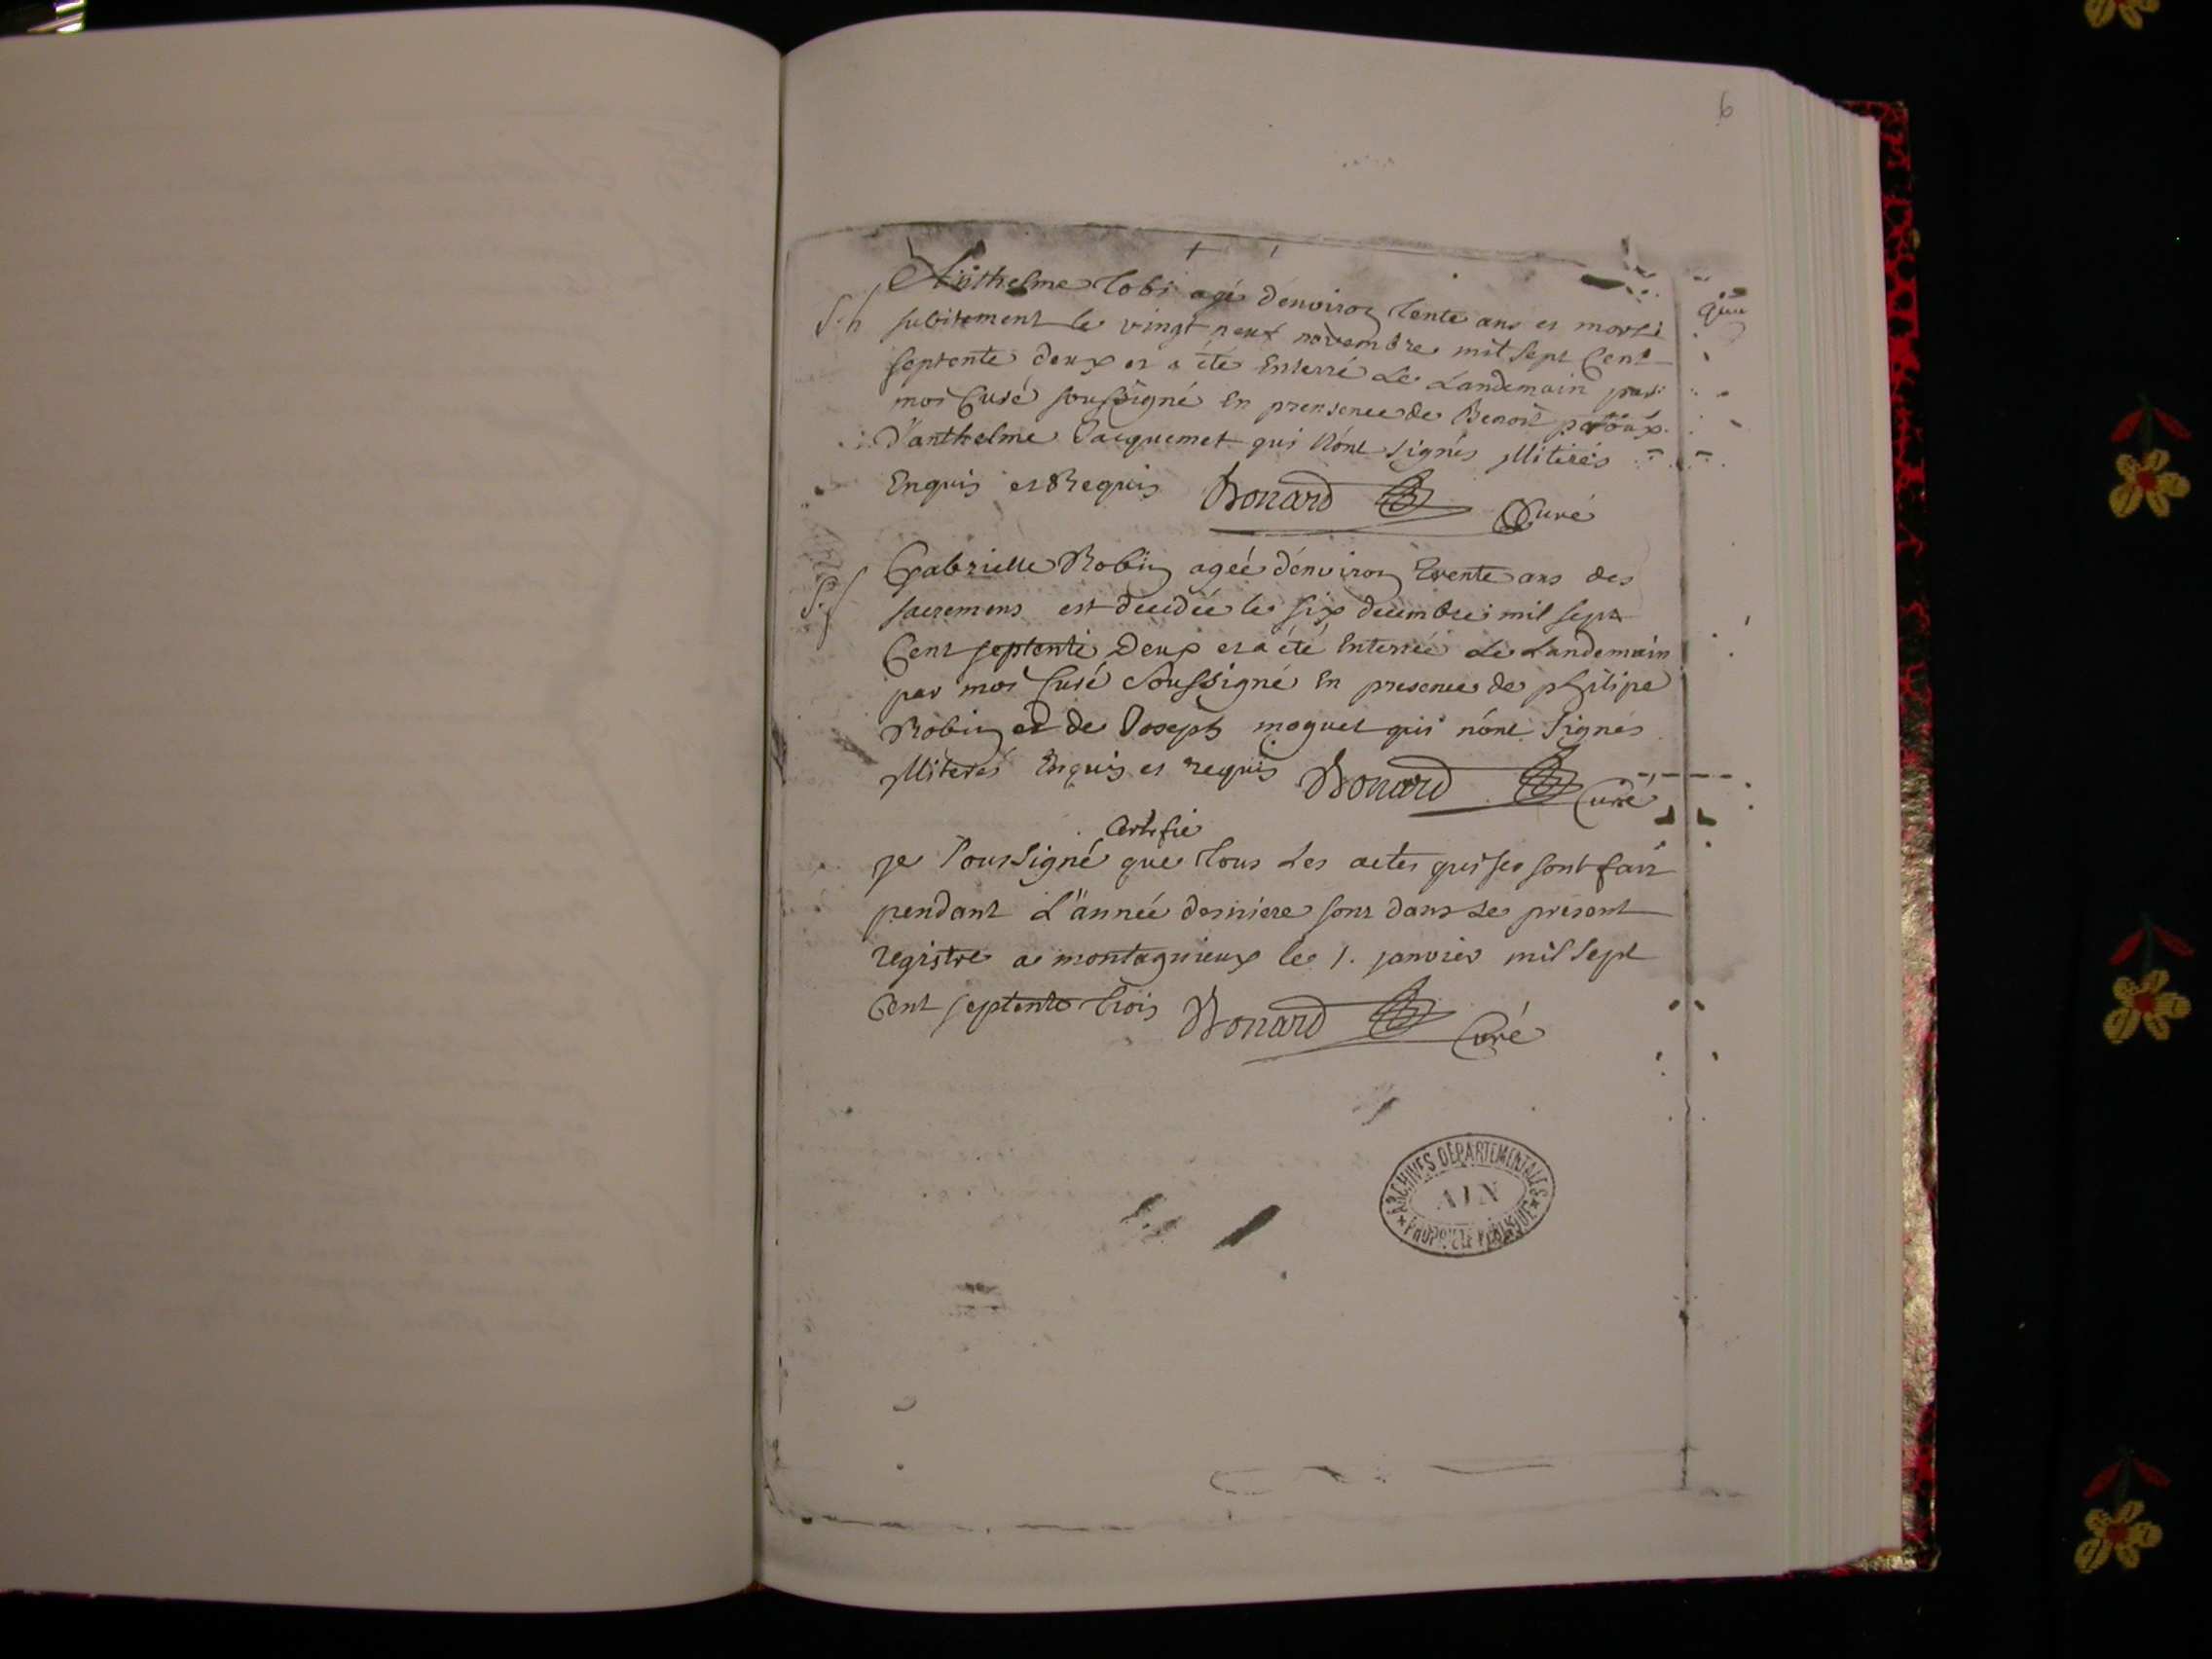 6
Anthelme Tobi agé d'environ trente ans es morti
S. h subitement le vingt neuf novembre mil sept Cent
septente deux et a été Enterré Le Landemain par
moi Curé soussigné En prensence de Benoit
d'anthelme Jacquemet qui n'ont signés illiterés
Enquis et Requis Bonard Curé
Gabrielle Robin agée d'environ trente ans des
S. f sacremens est decedée le six decembre mil sept
Cent septente Deux et a été Enterrée Le Landemain
par moi Curé Soussigné En presence de philipe
Robin et de Joseph moguet qui n'ont signés
illiterés Enquis et requis Bonard Curé
Certifie
je soussigné que tous Les actes qui se sont fait
pendant L'année derniere sont dans Le present
registre a montagnieux le 1. janvier mil sept
Cent septente trois Bonard Curé
ARCHIVES DÉPARTEMENTALES
AIN
PROPRIÉTÉ PUBLIQUE